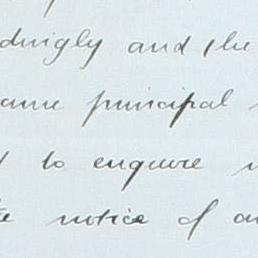 dingly and the
same principal
to enquire
notice of an